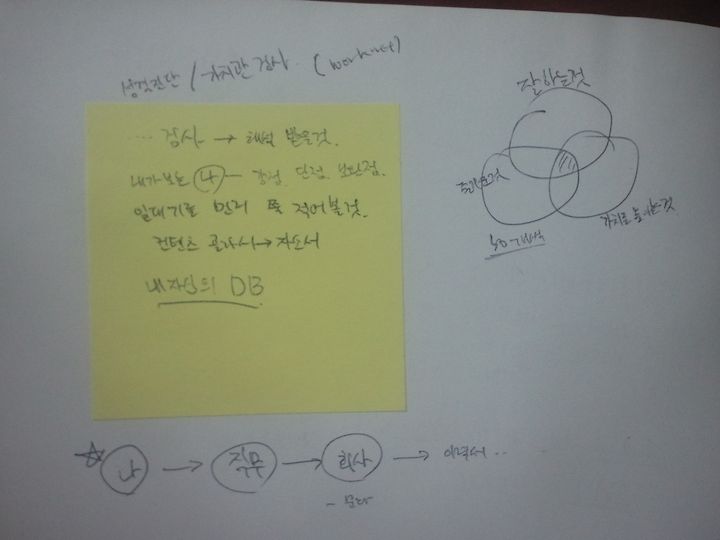 성격진단 / 가치관 검사 (worknet)
잘하는것
... 검사 → 해석 받을것.
내가보는 나 - 강점. 단점. 보완점.
일대기로 먼저 쭉 적어볼것.
컨텐츠 골라서 → 자소서
내자신의 DB
가치로 높이는것
50개씩
☆ 나 → 직무 → 회사 → 이력서..